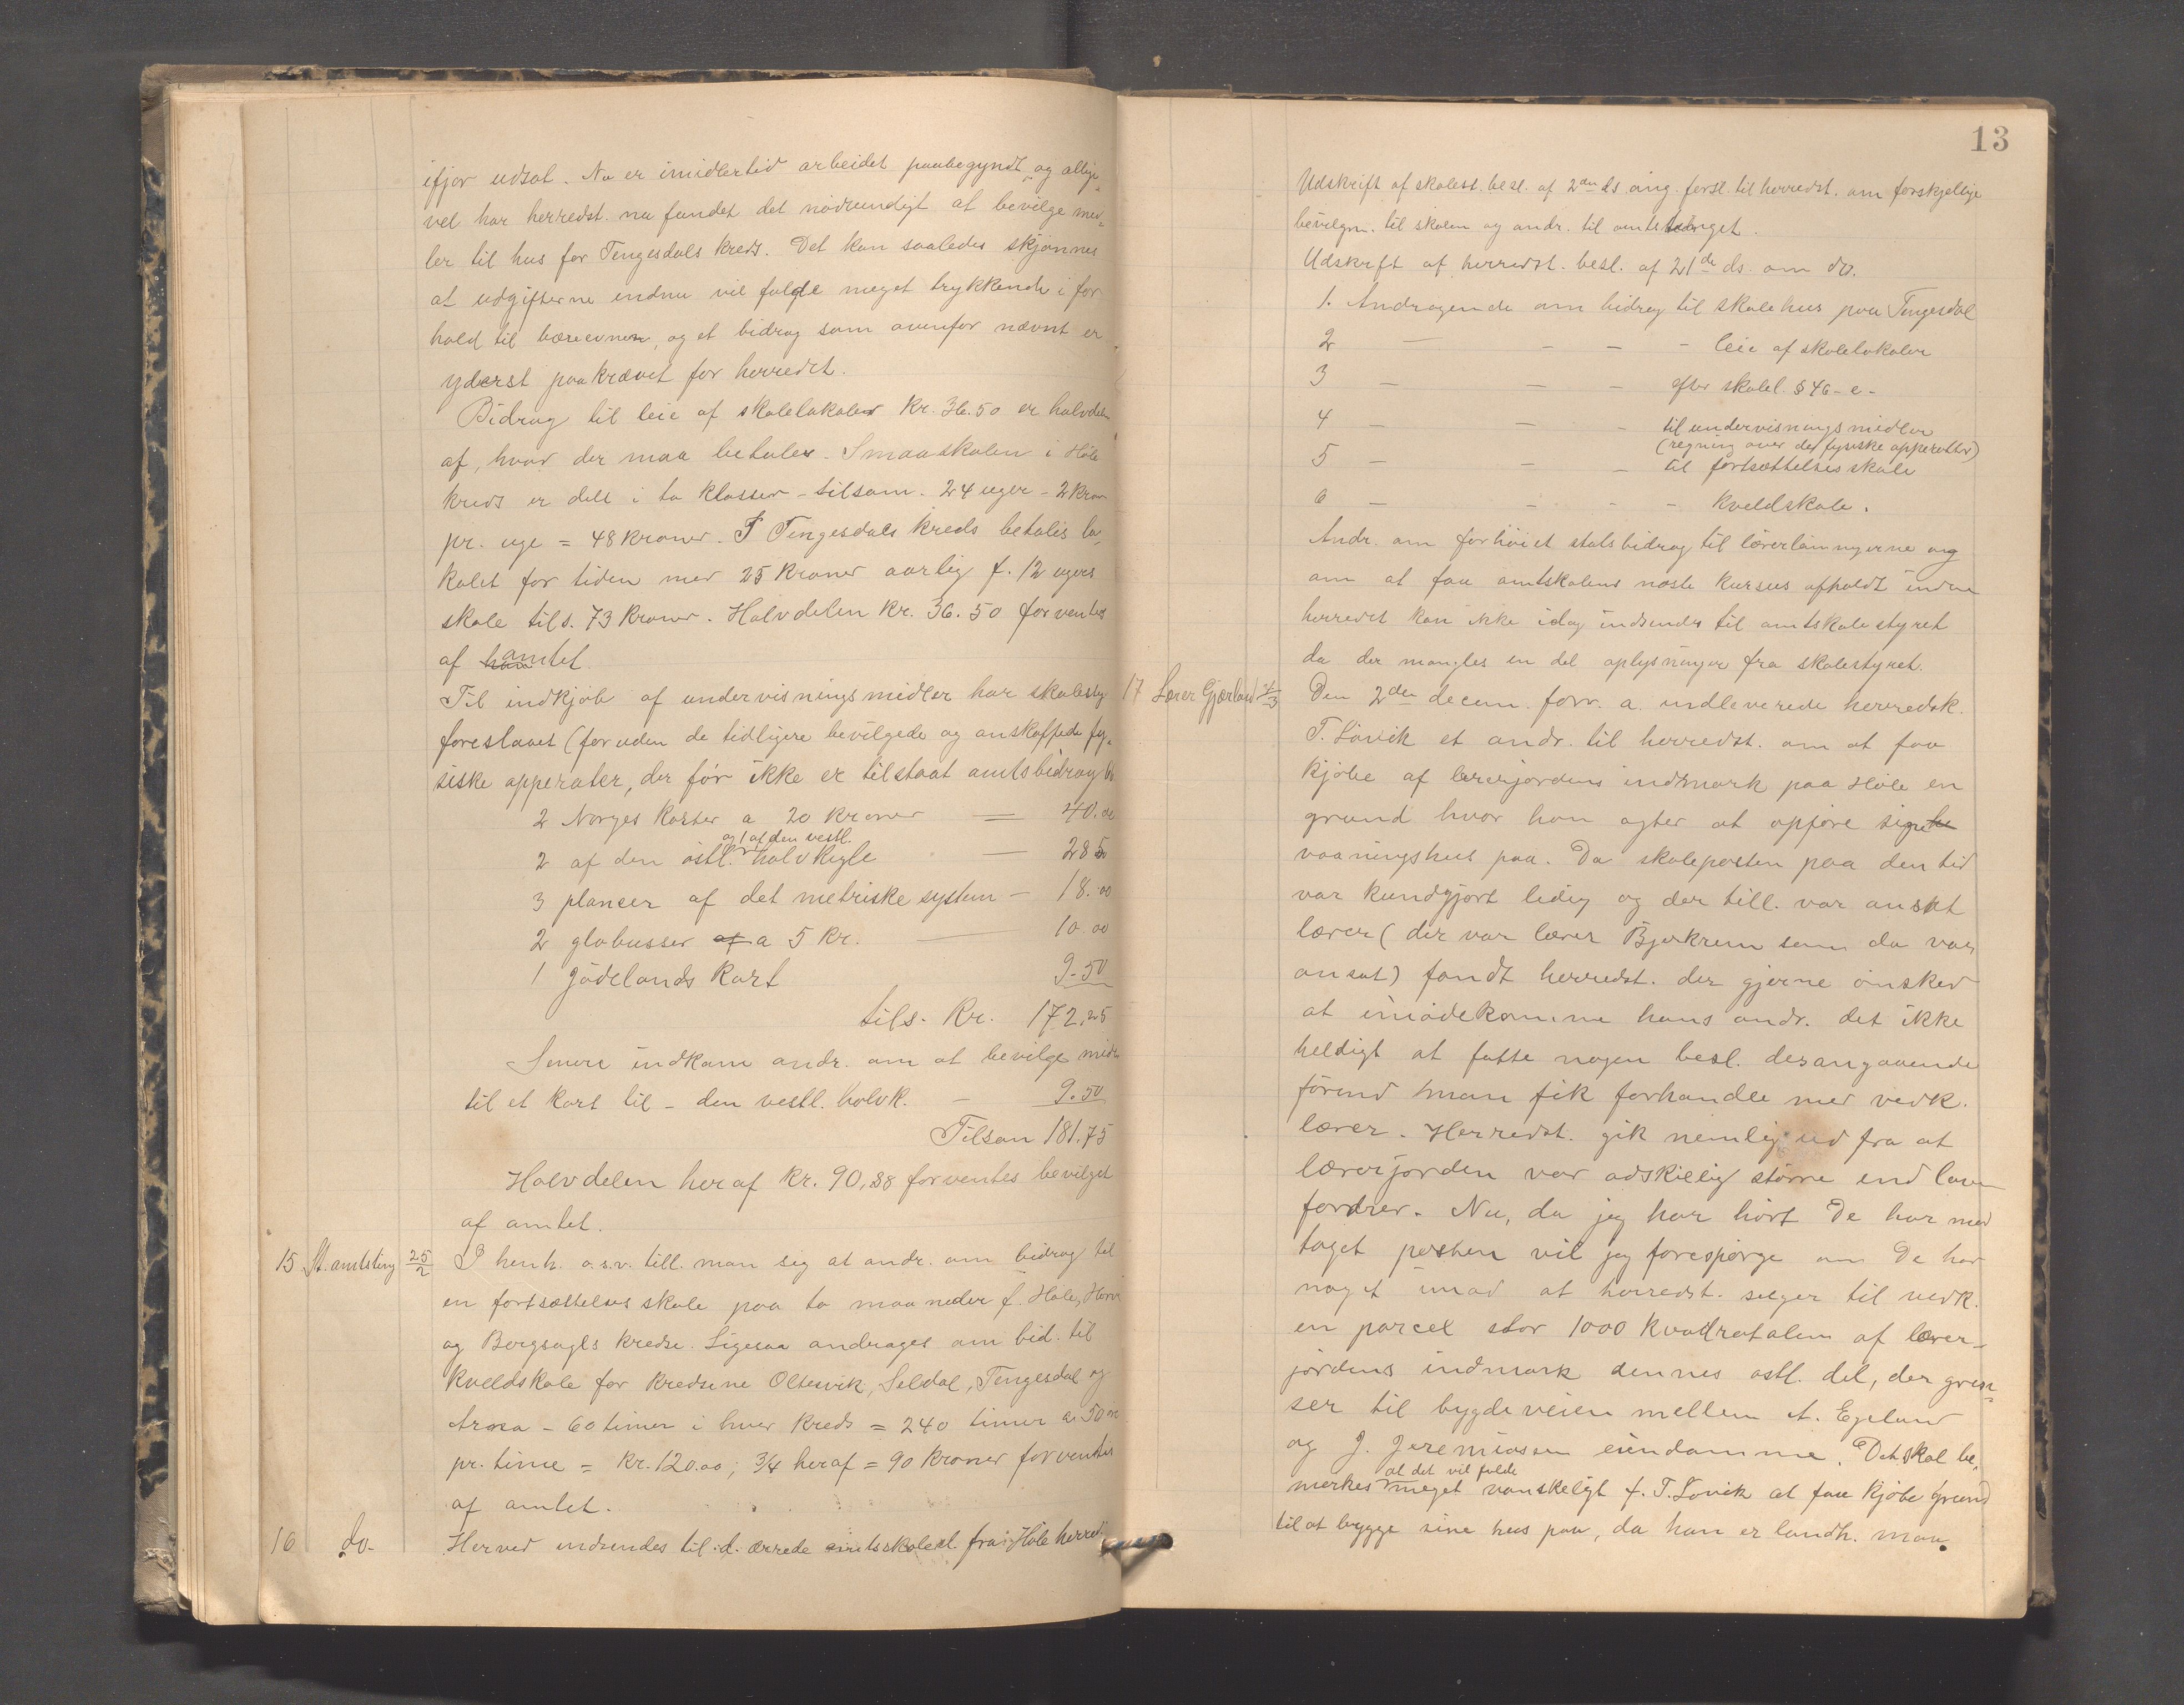 ifjor udsat. Nu er imidlertid arbeidet paabegyndt, og allige-
vel har herredst. nu fundet det nödvendigt at bevilge med-
ler til hus for Tengesdals kreds. Det kan saaledes skjönnes
at udgifterne endnu vil falde meget trykkende i for
hold til bæreevnen, og et bidrag som ovenfor nævnt er
yderst paakrævet for herredet.
Bidrag til leie af skolelokaler kr. 36.50 er halvdelen
af, hvad der maa betales. Smaaskolen i Höle
kreds er delt i to klasser - tilsam. 24 uger - 2 kroner
pr. uge = 48 kroner. I Tengesdals kreds betales lo-
kalet for tiden med 25 kroner aarlig f. 12 ugers
skole tils. 73 kroner. Halvdelen kr. 36.50 forventes
af amtet.
Til indkjöb af undervisningsmidler har skolesty
foreslaaet (foruden de tidligere bevilgede og anskaffede fy-
siske apperater, der för ikke er tilstaat amtsbidrag til
2 Norges karter a 20 kroner = 40.00
og 1 af den vestl.
2 af den östl. halvkugle — 28 50
3 plancer af det metriske system — 18.00
2 globusser af a 5 kr. — 10.00
1 Jödelands kart 9.50
tils. Kr. 172.25
Senere indkom andr. om at bevilge midler
til et kart til - den vestl. halvk. — 9.50
Tilsam 181.75
Halvdelen heraf kr. 90,88 forventes bevilget
af amtet.
15 St. amtsting 25/2 I henh. o.s.v. till. man sig at andr. om bidrag til
en fortsættelsesskole paa to maaneder f. Höle,
og Bergsagls kredse. Ligesaa andrages om bid. til
kveldskole for kredsene Oltesvik, Seldal, Tengesdal og
- 60 timer i hver kreds = 240 timer a 50 öre
pr. time = kr. 120.00; 3/4 heraf = 90 kroner forventes
af amtet.
16 do. Herved indsendes til d. ærede amtsskolest. fra Höle herred
13
Udskrift af skolest. besl. af 2den ds ang. forsl. til herredst. om forskjellige
bevilgn. til skolen og andr. til amtstinget.
Udskrft af herredst. besl. af 21de ds. om do.
1. Andragende om bidrag til skolehus paa Tengesdal
2 — — — - leie af skolelokaler
3 — — — efter skolel. § 46 - e -
4 — — - til undervisningsmidler
(regning over de fysiske apperatter)
5 — — — til fortsættelsesskole
6 — - - - kveldskole.
Andr. om forhöiet statsbidrag til lærerlönningerne og
om at faa amtskolens næste kursus afholdt i
herredet kan ikke idag indsendes til amtskolestyret
da der mangles en del oplysninger fra skolestyret.
17 Lærer Gjerland 2/3 Den 2den decem. forr. a. indleverede herredsk.
T. Lövik et andr. til herredst. om at faa
kjöbe af lærerjordens indmark paa Höle en
grund hvor han agter at opföre sig et
vaaningshus paa. Da skoleposten paa den tid
var kundgjort ledig og der till. var ansat
lærer (der var lærer Bjerkrem som da var
ansat) fandt herredst. der gjerne önsked
at imödekomme hans andr. det ikke
heldigt at fatte nogen besl. desangaaende
förend man fik forhandle med vedk.
lærer. Herredst. gik nemlig ud fra at
lærerjorden var adskillig större end loven
fordrer. Nu, da jeg har hört De har mod
taget posten vil jeg forespörge om De har
noget imod at herredst. selger til vedk.
en parcel stor 1000 kvadratalen af lærer-
jordens indmark dennes östl. del, der græn-
ser til bygdeveien mellem A. Egeland
og J. Jeremiassen eiendomme. Det skal be-
at det vil falde
merkes meget vanskeligt f. T. Lövik at faa kjöbe grund
til at bygge sine hus paa, da han er landh. man.